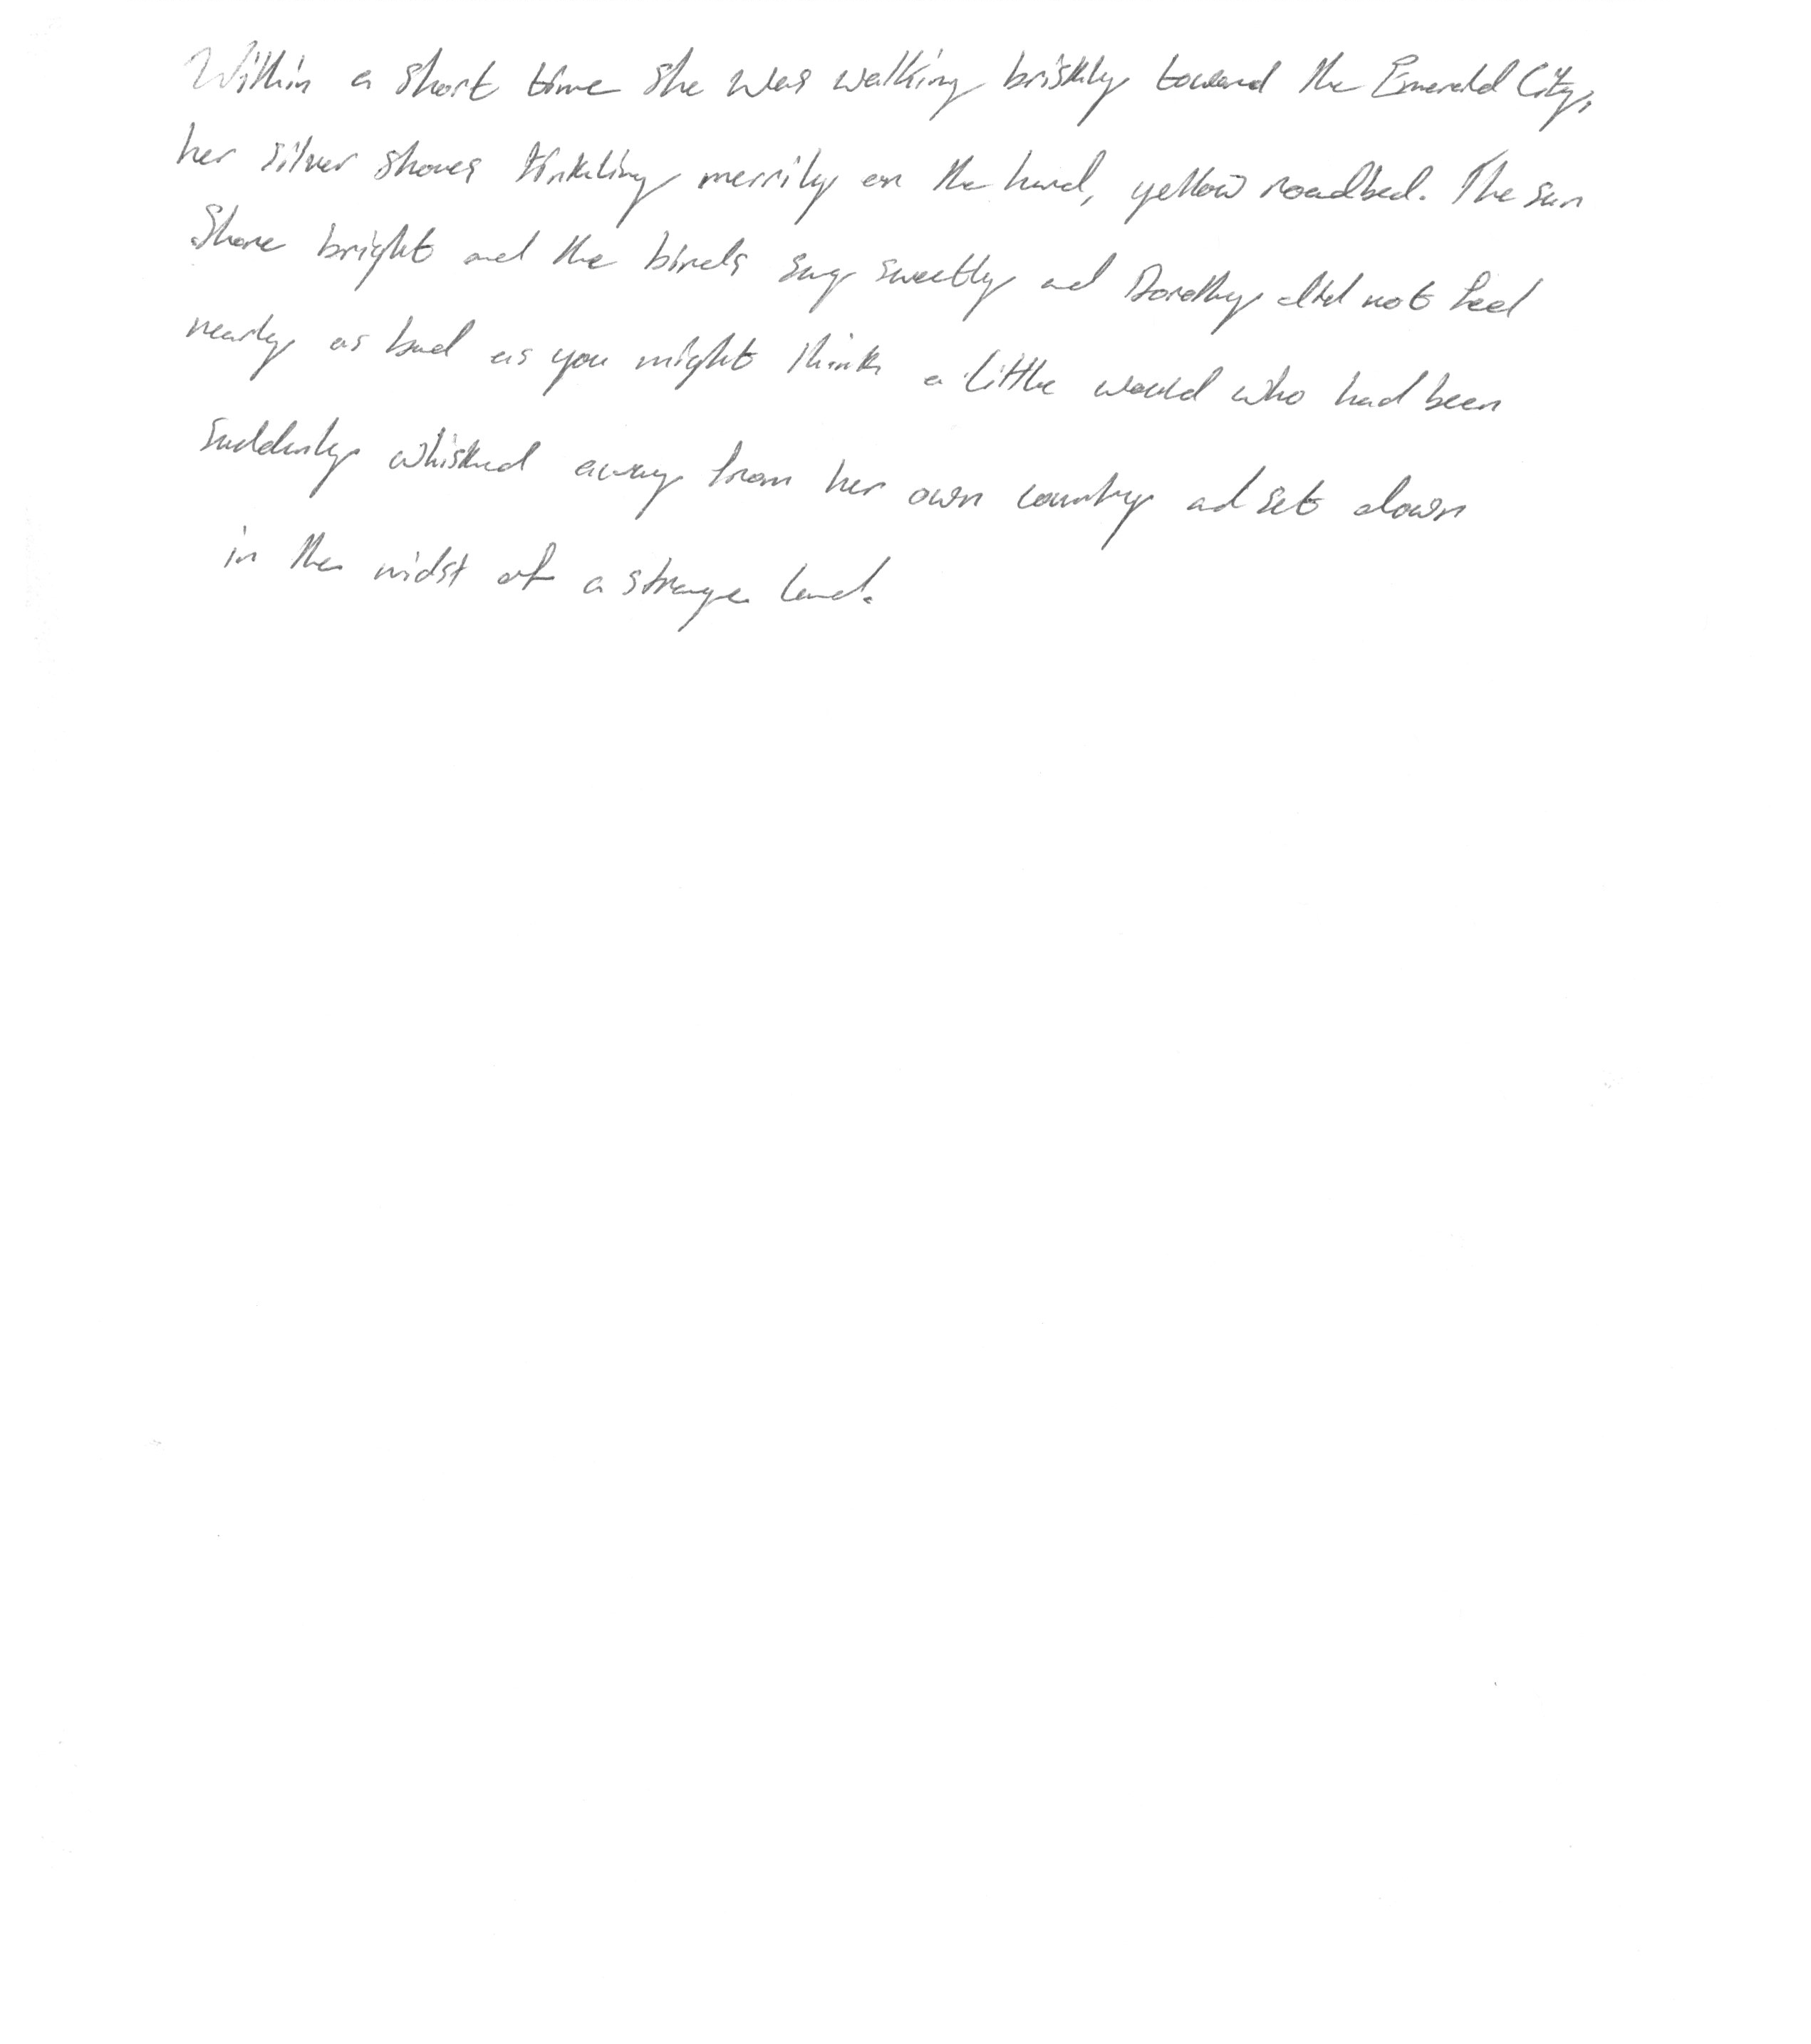 Within a short time she was walking briskly toward the Emerald City,
her silver shoues tinkling merrily on the hard, yellow roadbed. The sun
shone bright and the birds sang sweetly and Dorothy did not feel
nearly as bad as you might think a little would who had been
suddenly whisked away from her own country and set down
in the midst of a strange land.